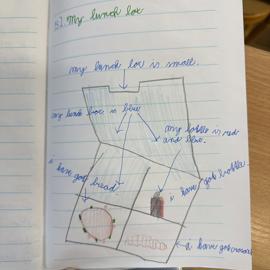 8) My lunch box
my lunch box is small.
my lunch box is blue
my bottle is red
and blue.
I have got bread
I have got bottle.
I have got